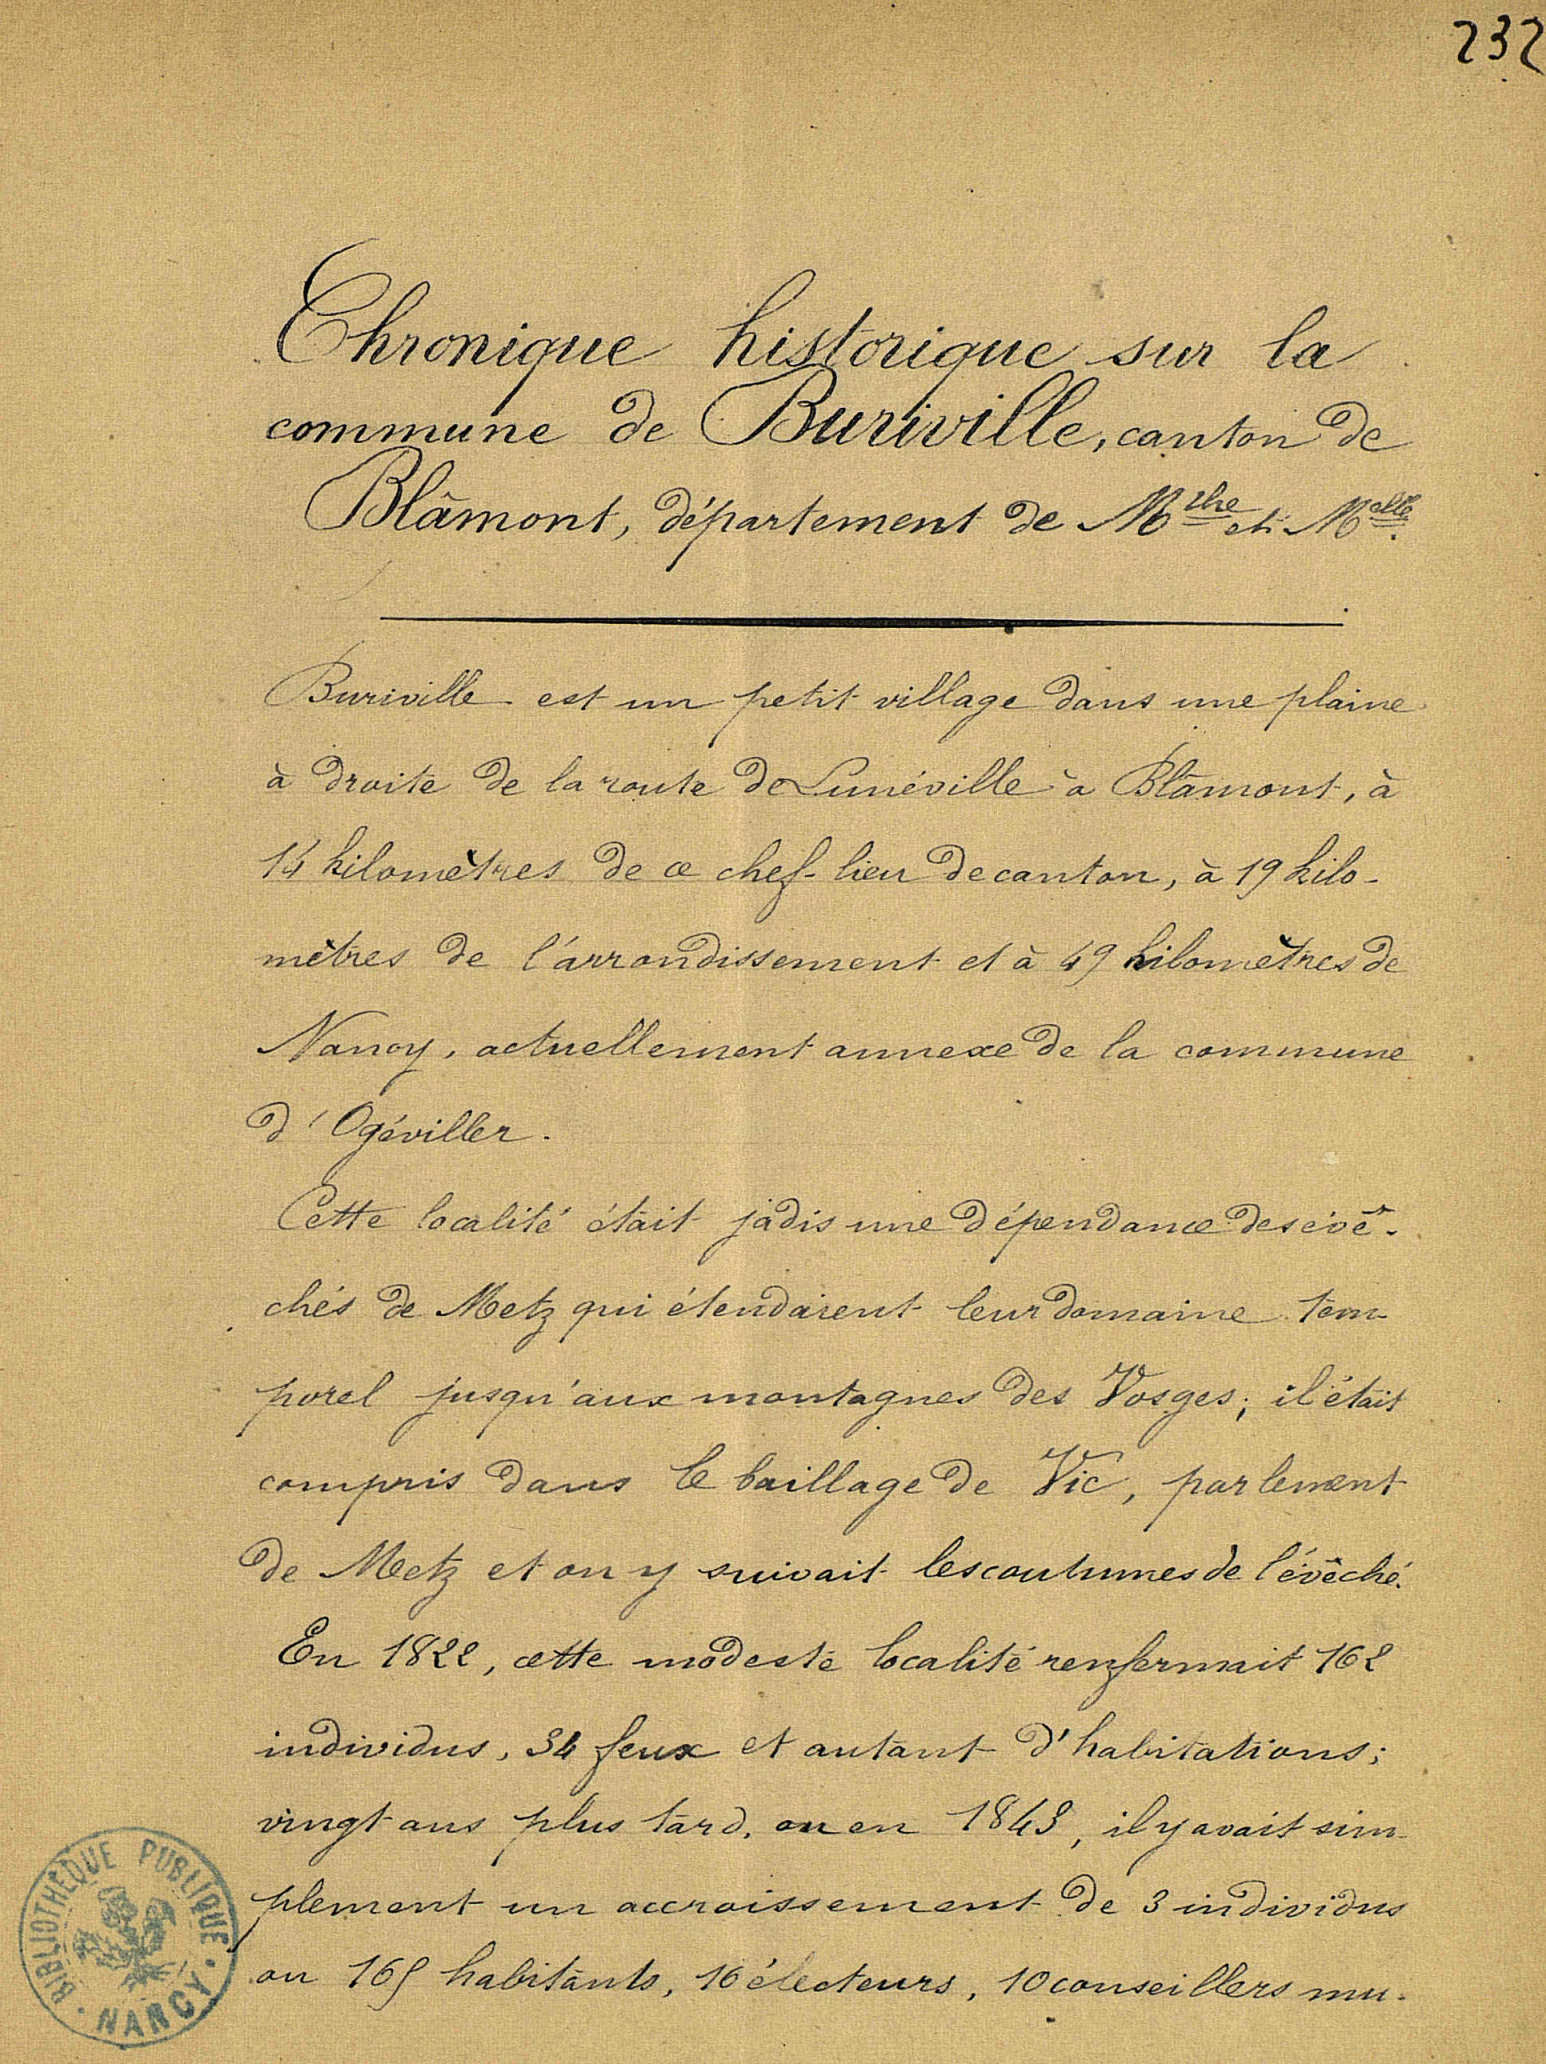 232
Chronique historique sur la
commune de Buriville, canton de
Blâmont, département de Mthe et Melle.
Buriville est un petit village dans une plaine
à droite de la route de Lunéville à Blâmont, à
14 kilomètres de ce chef-lieu de canton, à 19 kilo-
mètres de l'arrondissement et à 49 kilomètres de
Nancy, actuellement annexe de la commune
d'Ogéviller.
Cette localité était jadis une dépendance des évê-
chés de Metz qui étendaient leur domaine tem-
porel jusqu'aux montagnes des Vosges; il était
compris dans le baillage de Vic, parlement
de Metz et on y suivait les coutumes de l'évêché.
En 1822, cette modeste localité renfermait 162
individus, 34 feux et autant d'habitations;
vingt ans plus tard, ou en 1843, il y avait sim-
plement un accroissement de 3 individus
ou 165 habitants, 16 électeurs, 10 conseillers mu-
BIBLIOTHÈQUE PUBLIQUE
NANCY